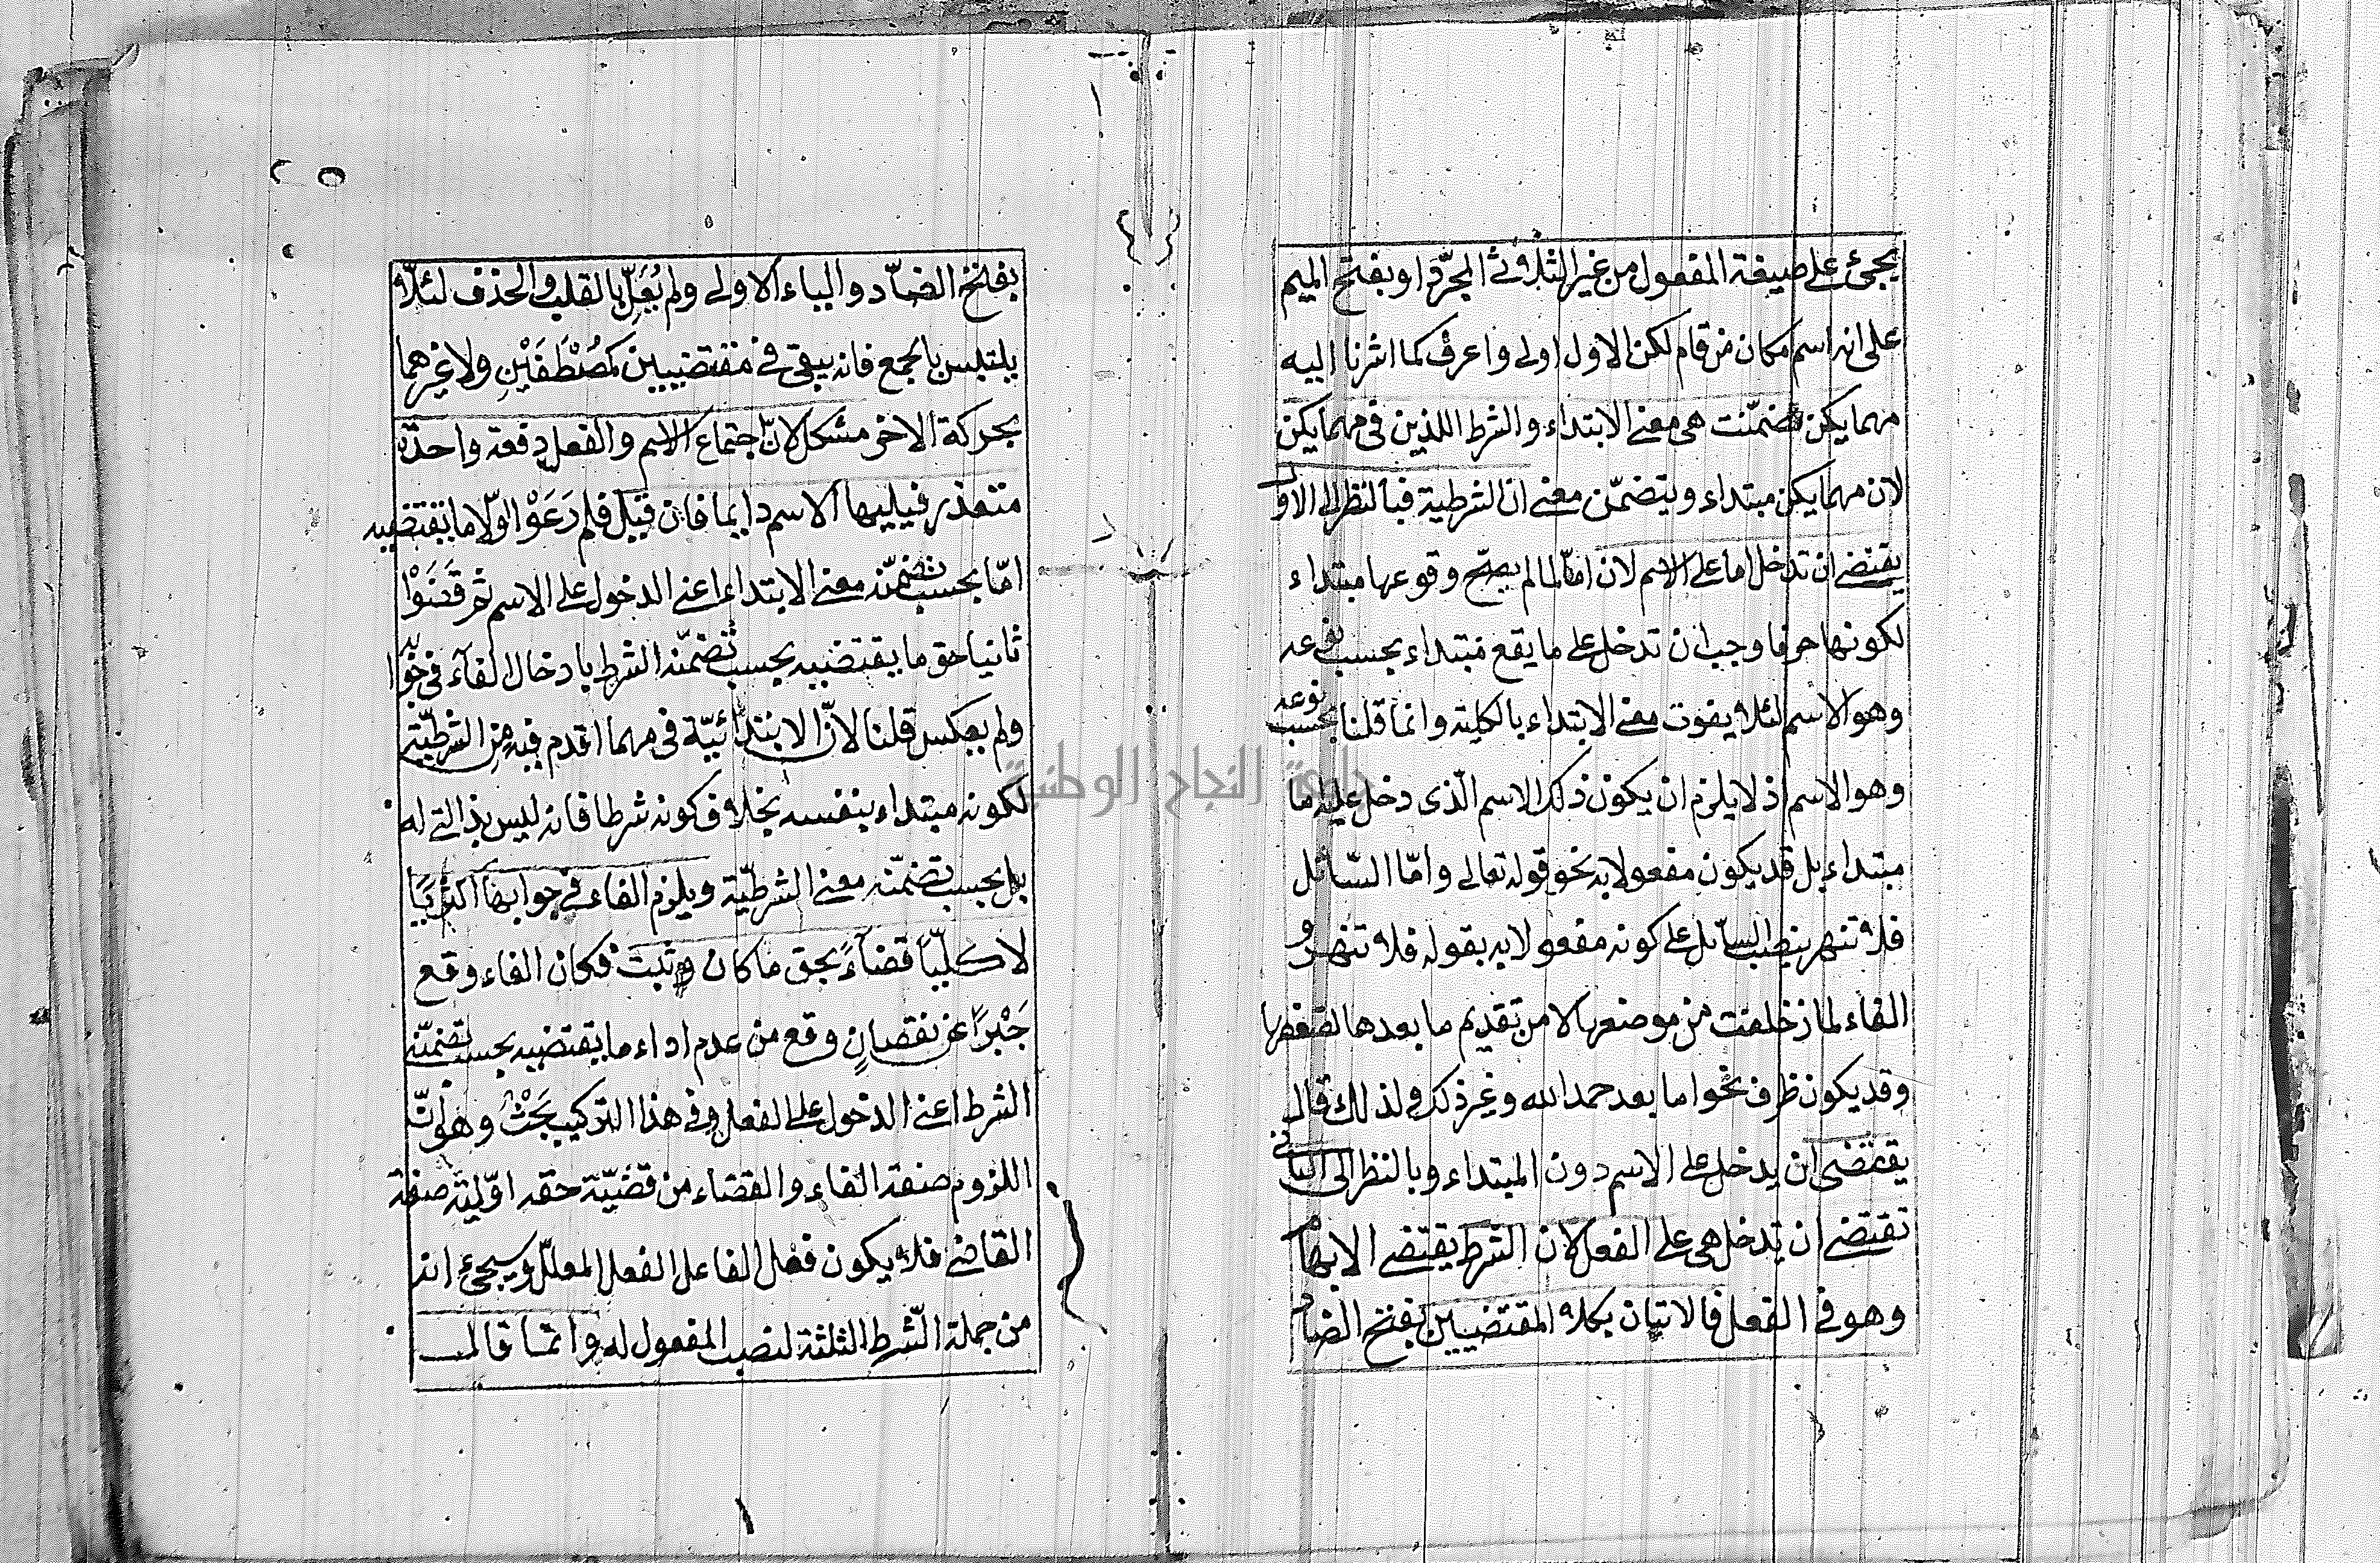 يجئ على صيغة المفعول من غير الثلاثى المجرّد او بفتح الميم
على انه اسم مكان من قام لكن الاول اولى واعرف كما اشرنا اليه
مهما يكن تضمّنت هى معنى الابتداء والشرط اللذين فى مهما يكن
لان مهما يكن مبتداء ويتضمّن معنى ان الشرطية فبالنظر الى الاول
يقتضى ان تدخل اما على الاسم لان امّا لما لم يصح وقوعها مبتداء
لكونها حرفا وجب ان تدخل على ما يقع مبتداء بحسب نوعه
وهو الاسم لئلا يفوت معنى الابتداء بالكلية وانما قلنا بحسب نوعه
وهو الاسم اذ لا يلزم ان يكون ذلك الاسم الّذى دخل عليه ما
مبتداء بل قد يكون مفعولا به نحو قوله تعالى وامّا السّائل
فلا تنهر ينصب السائل على كونه مفعولا به بقوله فلا تنهر و
الفاء لما زحلفت من موضعها لا من تقديم ما بعدها لضعفها
وقد يكون ظرف نحو اما بعد حمد الله وغير ذلك ولذلك قال
يقتضى ان يدخل على الاسم دون المبتداء وبالنظر الى الثانى
تقتضى ان تدخل هى على الفعل لان الشرط يقتضى الابهام
وهو فى الفعل فالاتيان بكلا المقتضيين بفتح الضاد
٢٥
بفتح الضّاد والياء الاولى ولم يُعَلّ بالقلب والحذف لئلّا
يلتبس بالجمع فانه يبقى فى مقتضيين كمُصْطَفَيْنِ ولا غيرهما
بحركة الاخر مشكل لانّ اجتماع الاسم والفعل دفعة واحدة
متعذر فيليها الاسم دايما فان قيل فلم رَعَوْا اوّلا ما يقتضيه
امّا بحسب تضمّنه معنى الابتداء اعنى الدخول على الاسم ثم قَضَوْا
ثانيا حق ما يقتضيه بحسب تضمّنه الشرط بادخال الفآء فى جوابه
ولم يعكس قلنا لانّ الابتدائيّة فى مهما اقدم فيه من الشرطيّة
لكونه مبتداء بنفسه بخلاف كونه شرطا فانه ليس بذا التى له
بل بحسب تضمّنه معنى الشرطيّة ويلزم الفاء فى جوابها اكثريّا
لا كلّيّا قضآءً بحق ما كان وثبت فكان الفاء وقع
جَبْرًا عن نقصانٍ وقع من عدم اداء ما يقتضيه بحسب تضمّنه
الشرط اعنى الدخول على الفعل وفى هذا التركيب بَحْثٌ وهو انّ
اللزوم صفة الفاء والقضاء من قضيّة حقه اوّلية صفة
القاضى فلا يكون فعل الفاعل الفعل المعلّل وسيجئ انه
من جملة الشّرط الثلثة لنصب المفعول له وانّما قال
جامعة النجاح الوطنية